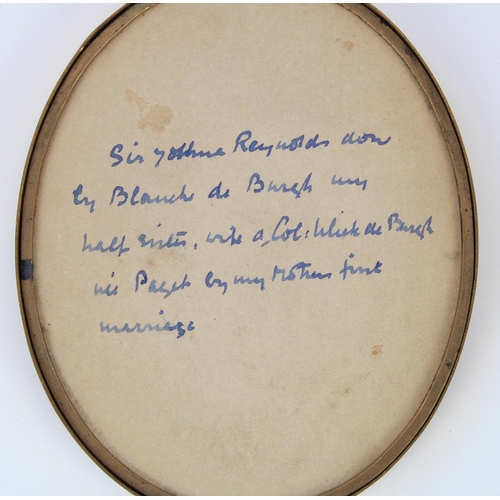 Sir Joshua Reynolds done
by Blanche de Burgh my
half sister, wife of Col: Ulick de Burgh
née Paget by my Mothers first
marriage